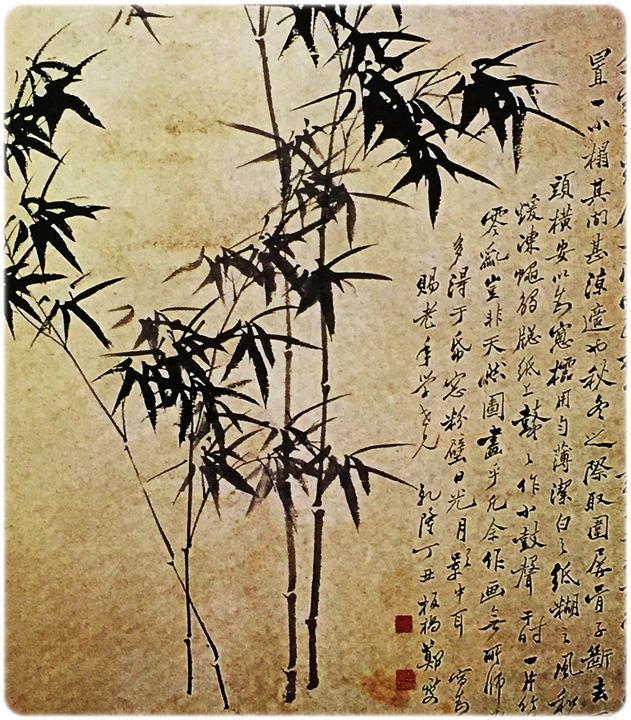 置一小榻其間甚涼適也秋冬之際取圍屏骨子斷去
頭橫安以为窓櫺用勻薄潔白之紙糊之風和
煖凍蠅觸窓紙上鼕〻作小鼓聲于时一片竹
零亂豈非天然圖畫乎凡余作画無所師
多得于帋窓粉壁日光月影中耳 寫为
賜老年學世兄 乾隆丁丑板橋鄭燮